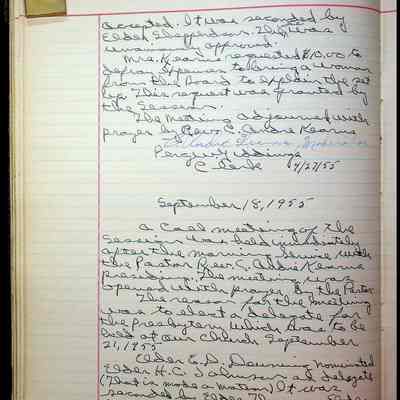 accepted. It was seconded by
Elder Shepperdson. This was
unanimously approved.
Mrs. Kearns requested $10.00 to
defray expenses to bring a woman
from the Board to explain the set
up. This request was granted by
the Session.
The Meeting adjourned with
prayer by Rev. C. Andre Kearns
Moderator
Clerk 9/27/55
September 18, 1955
A call meeting of the
Session was held immediately
after the morning service with
the Pastor Rev. C. Andre Kearns
presiding. The meeting was
opened with prayer by the Pastor
The reason for the meeting
was to elect a delegate for
the Presbytery which was to be
held at our Church September
21, 1955
Elder E. S. Downing nominated
Elder H. C. Johnson as delegate
(That is made a motion) It was
seconded by Elder